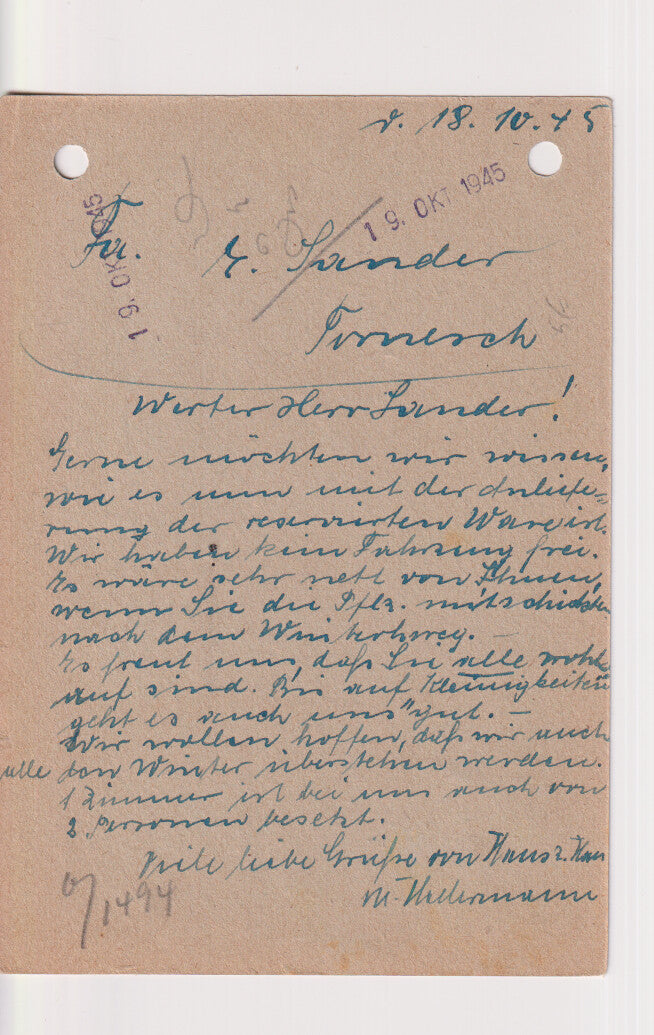 d. 18.10.45
19. OKT 1945
19. OKT 1945
Fa. E. Sander
Tornesch
Werter Herr Sander!
Gerne möchten wir wissen,
wie es nun mit der Anliefe-
rung der reservirten Ware ist.
Wir haben kein Fahrzeug frei.
Es wäre sehr nett von Ihnen,
wenn Sie die Pflz. mitschicken
nach dem Winterhweg. —
Es freut uns, daß Sie alle wohl-
auf sind. Bis auf "Kleinigkeiten
geht es auch uns" gut. —
Wir wollen hoffen, daß wir auch
alle den Winter überstehen werden.
1 Zimmer ist bei uns auch von
2 Personen besetzt.
Viele liebe Grüße von Haus z. Haus
1494